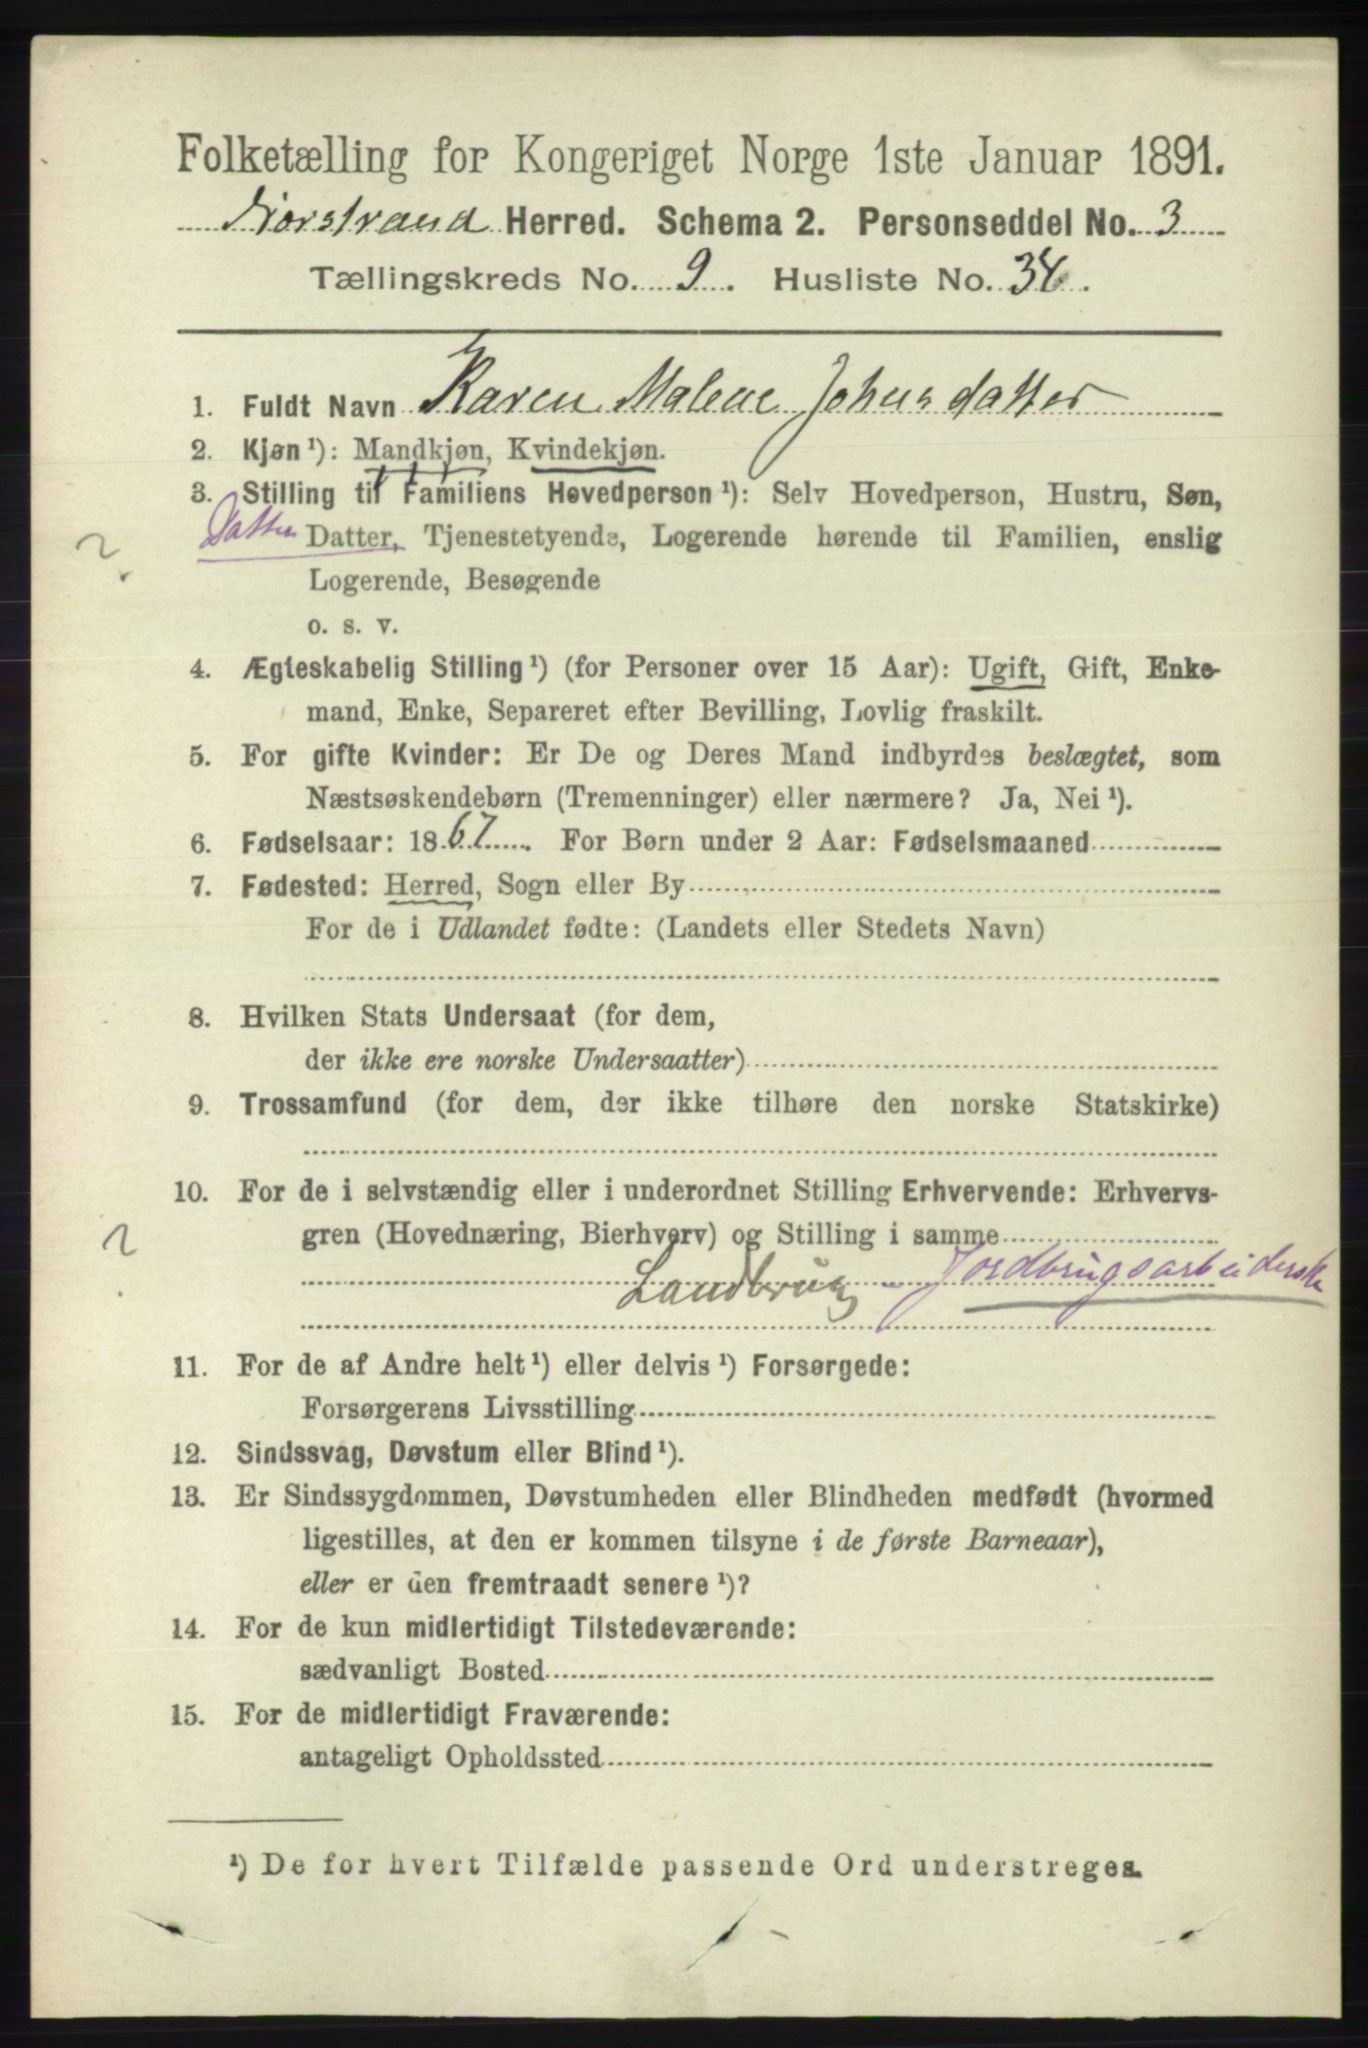 Folketælling for Kongeriget Norge 1ste Januar 1891.
Norstrand Herred. Schema 2. Personseddel No. 3
Tællingskreds No. 9. Husliste No. 34.
1. Fuldt Navn Karen Malene Johnsdatter
2. Kjøn ¹): Mandkjøn, Kvindekjøn.
3. Stilling til Familiens Hovedperson ¹): Selv Hovedperson, Hustru, Søn,
Datter Datter, Tjenestetyende, Logerende hørende til Familien, enslig
Logerende, Besøgende
o. s. v.
4. Ægteskabelig Stilling ¹) (for Personer over 15 Aar): Ugift, Gift, Enke-
mand, Enke, Separeret efter Bevilling, Lovlig fraskilt.
5. For gifte Kvinder: Er De og Deres Mand indbyrdes beslægtet, som
Næstsøskendebørn (Tremenninger) eller nærmere? Ja, Nei ¹).
6. Fødselsaar: 1867. For Børn under 2 Aar: Fødselsmaaned
7. Fødested: Herred, Sogn eller By
For de i Udlandet fødte: (Landets eller Stedets Navn)
8. Hvilken Stats Undersaat (for dem,
der ikke ere norske Undersaatter)
9. Trossamfund (for dem, der ikke tilhøre den norske Statskirke)
10. For de i selvstændig eller i underordnet Stilling Erhvervende: Erhvervs-
gren (Hovednæring, Bierhverv) og Stilling i samme
Landbrug - Jordbrugsarbeiderske
11. For de af Andre helt ¹) eller delvis ¹) Forsørgede:
Forsørgerens Livsstilling
12. Sindssvag, Døvstum eller Blind ¹).
13. Er Sindssygdommen, Døvstumheden eller Blindheden medfødt (hvormed
ligestilles, at den er kommen tilsyne i de første Barneaar),
eller er den fremtraadt senere ¹)?
14. For de kun midlertidigt Tilstedeværende:
sædvanligt Bosted
15. For de midlertidigt Fraværende:
antageligt Opholdssted
¹) De for hvert Tilfælde passende Ord understreges.